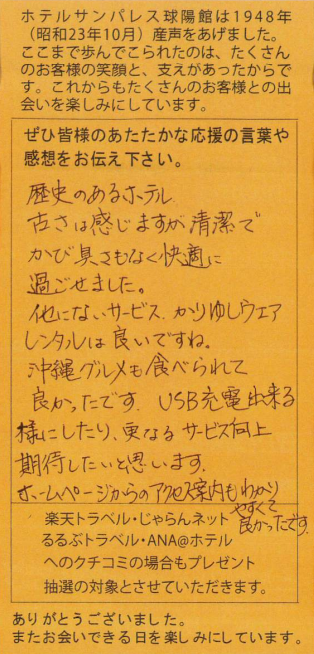 ホテルサンパレス球陽館は1948年
（昭和23年10月）産声をあげました。
ここまで歩んでこられたのは、たくさん
のお客様の笑顔と、支えがあったからで
す。これからもたくさんのお客様との出
会いを楽しみにしています。
ぜひ皆様のあたたかな応援の言葉や
感想をお伝え下さい。
歴史のあるホテル
古さは感じますが清潔で
かび臭さもなく快適に
過ごせました。
他にないサービス、かりゆしウェア
レンタルは良いですね。
沖縄グルメも食べられて
良かったです。USB充電出来る
様にしたり、更なるサービス向上
期待したいと思います。
ホームページからのアクセス案内もわかり
やすくて
良かったです。
楽天トラベル・じゃらんネット
るるぶトラベル・ANA@ホテル
へのクチコミの場合もプレゼント
抽選の対象とさせていただきます。
ありがとうございました。
またお会いできる日を楽しみにしています。